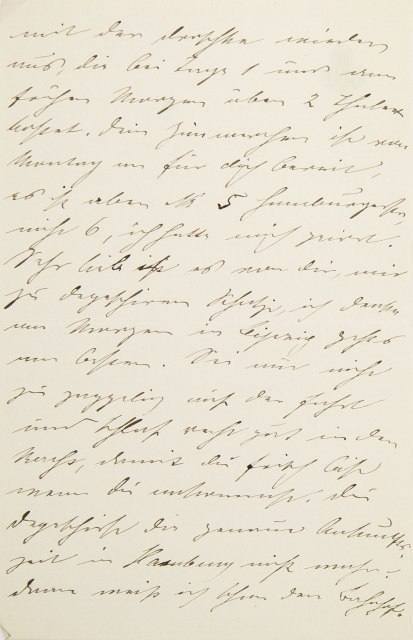 mit der Droschke wieder
aus, die bei Tage 1 und am
frühen Morgen über 2 Thaler
kostet. Dein Zimmerchen ist von
Montag an für dich bereit,
es ist aber No 5
nicht 6, ich hatte mich geirrt.
Sehr lieb ist es von dir, mir
zu depeschiren Schatz, ich denke
am Morgen in Leipzig geht's
am besten. Sei nur nicht
zu zappelig auf der Fahrt
und schlaf recht gut in der
Nacht, damit du frisch bist
wenn du ankommst. Du
depeschirst die genaue Ankunfts-
zeit in Hamburg nicht wahr.
dann weiß ich schon den Bahnhof.